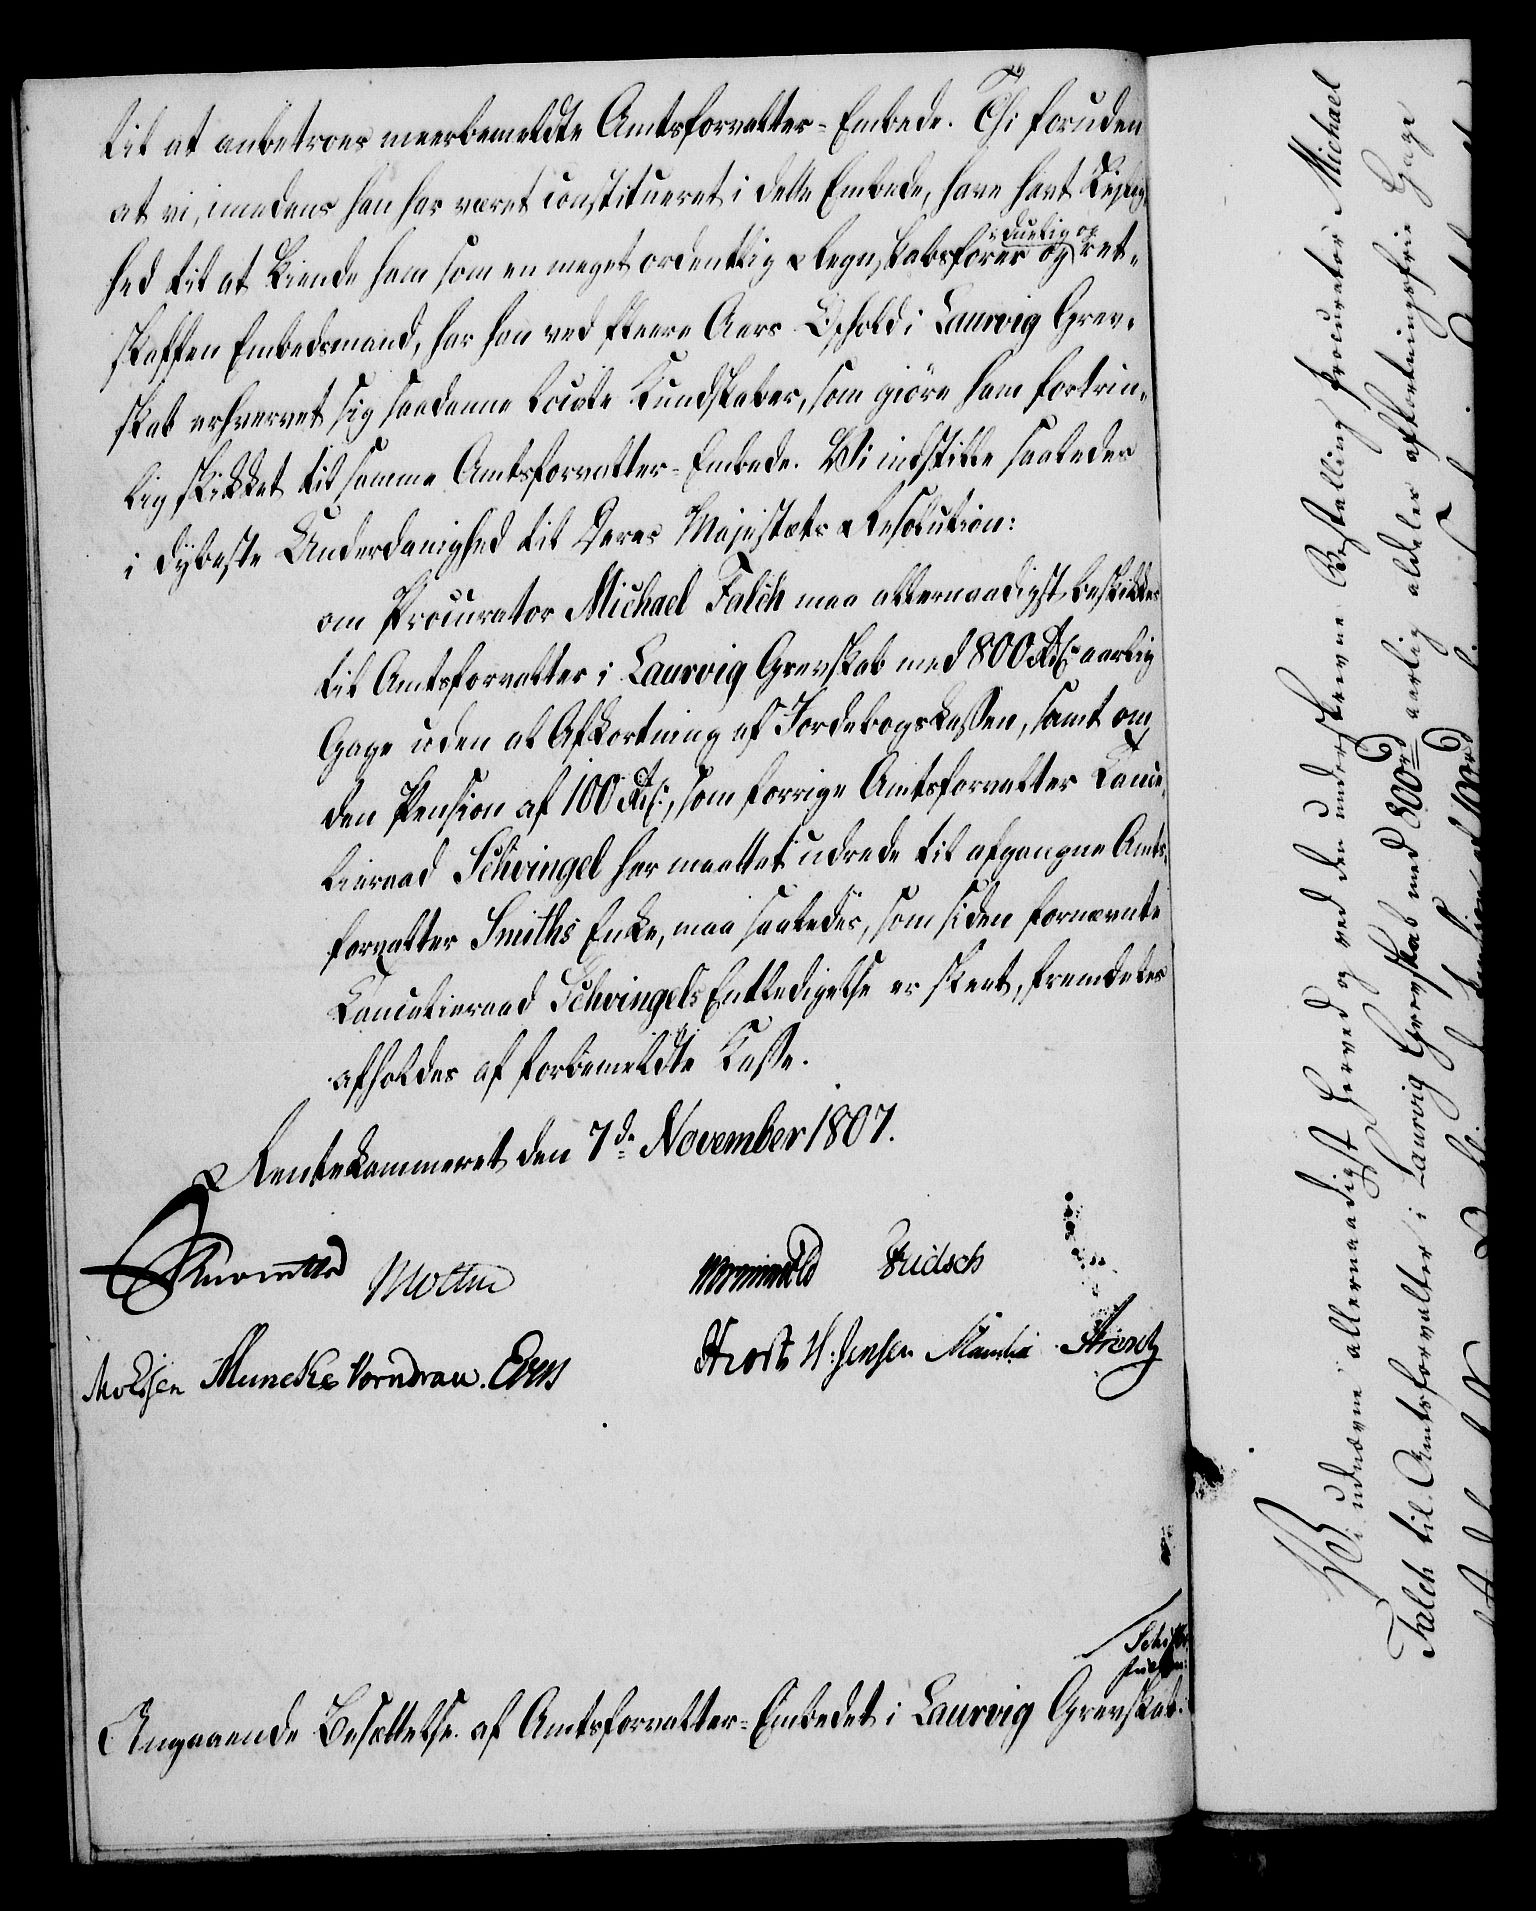 til at anbetroes meerbemeldte Amtsforvalter-Embede. Thi foruden
at vi, imedens han har været constitueret i dette Embede, have havt Leilig-
hed til at kiende ham som en meget ordentlig Regnskabsfører og duelig og ret-
skaffen Embedsmand, har han ved fleere Aars Ophold i Laurvig Grev-
skab erhvervet sig saadanne locale Kundskaber, som giøre ham fortrin-
lig skikket til samme Amtsforvalter-Embede. Vi indstille saaledes
i dybeste Underdanighed til Deres Majestæts Resolution:
om Procurator Michael Falch maa allernaadigst beskikkes
til Amtsforvalter i Laurvig Grevskab med 800 Rd. aarlig
Gage uden al Afkortning af Jordebogskassen, samt om
den Pension af 100 Rd., som forrige Amtsforvalter Cance-
lieraad Schvingel har maattet udrede til afgangne Amts-
forvalter Smiths Enke, maa saaledes, som siden fornævnte
Cancelieraad Schvingels Entledigelse er skeet, fremdeles
afholdes af forbemeldte Kasse.
Rentekammeret den 7de November 1807.
Moltke Wormskiold Fridsch
Muncke Vorndran. H. Jensen
Angaaende Besættelse af Amtsforvalter-Embedet i Laurvig Grevskab.
Vi udnævne allernaadigst herved og ved den underskrevne Bestalling Procurator Michael
Falch til Amtsforvalter i Laurvig Grevskab med 800rd aarlig aldeles afkortningsfrie Gage